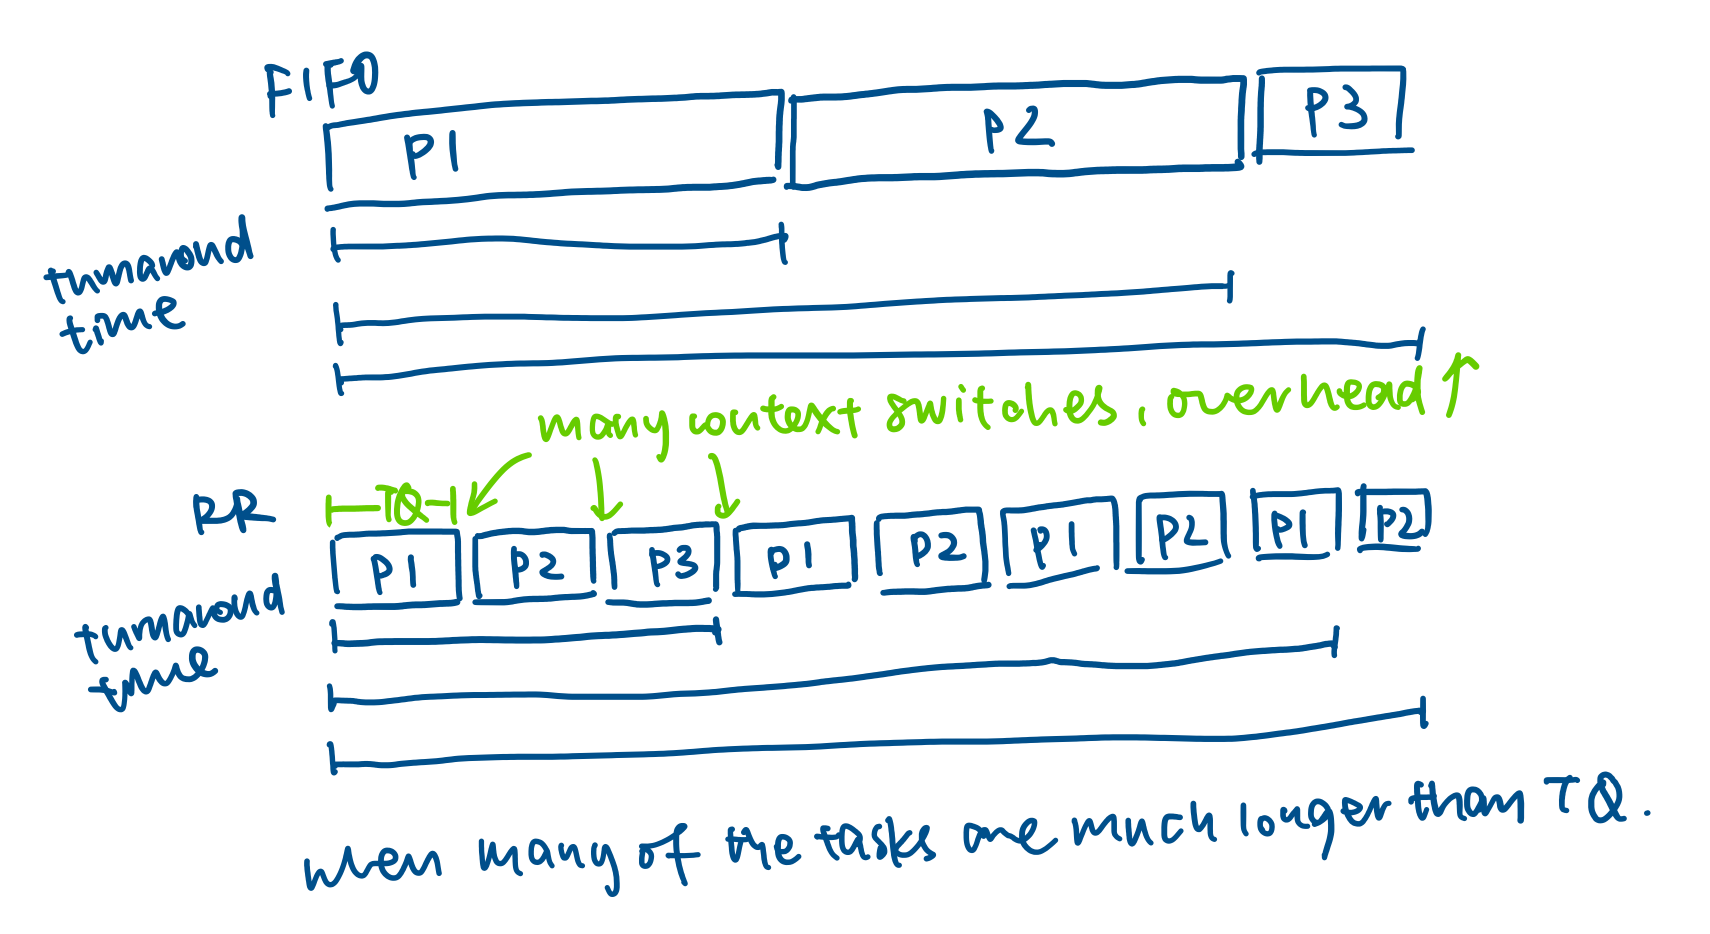 FIFO
P1 P2 P3
turnaround
time
many context switches, overhead ↑
RR
TQ
P1 P2 P3 P1 P2 P1 P2 P1 P2
turnaround
time
when many of the tasks are much longer than TQ.